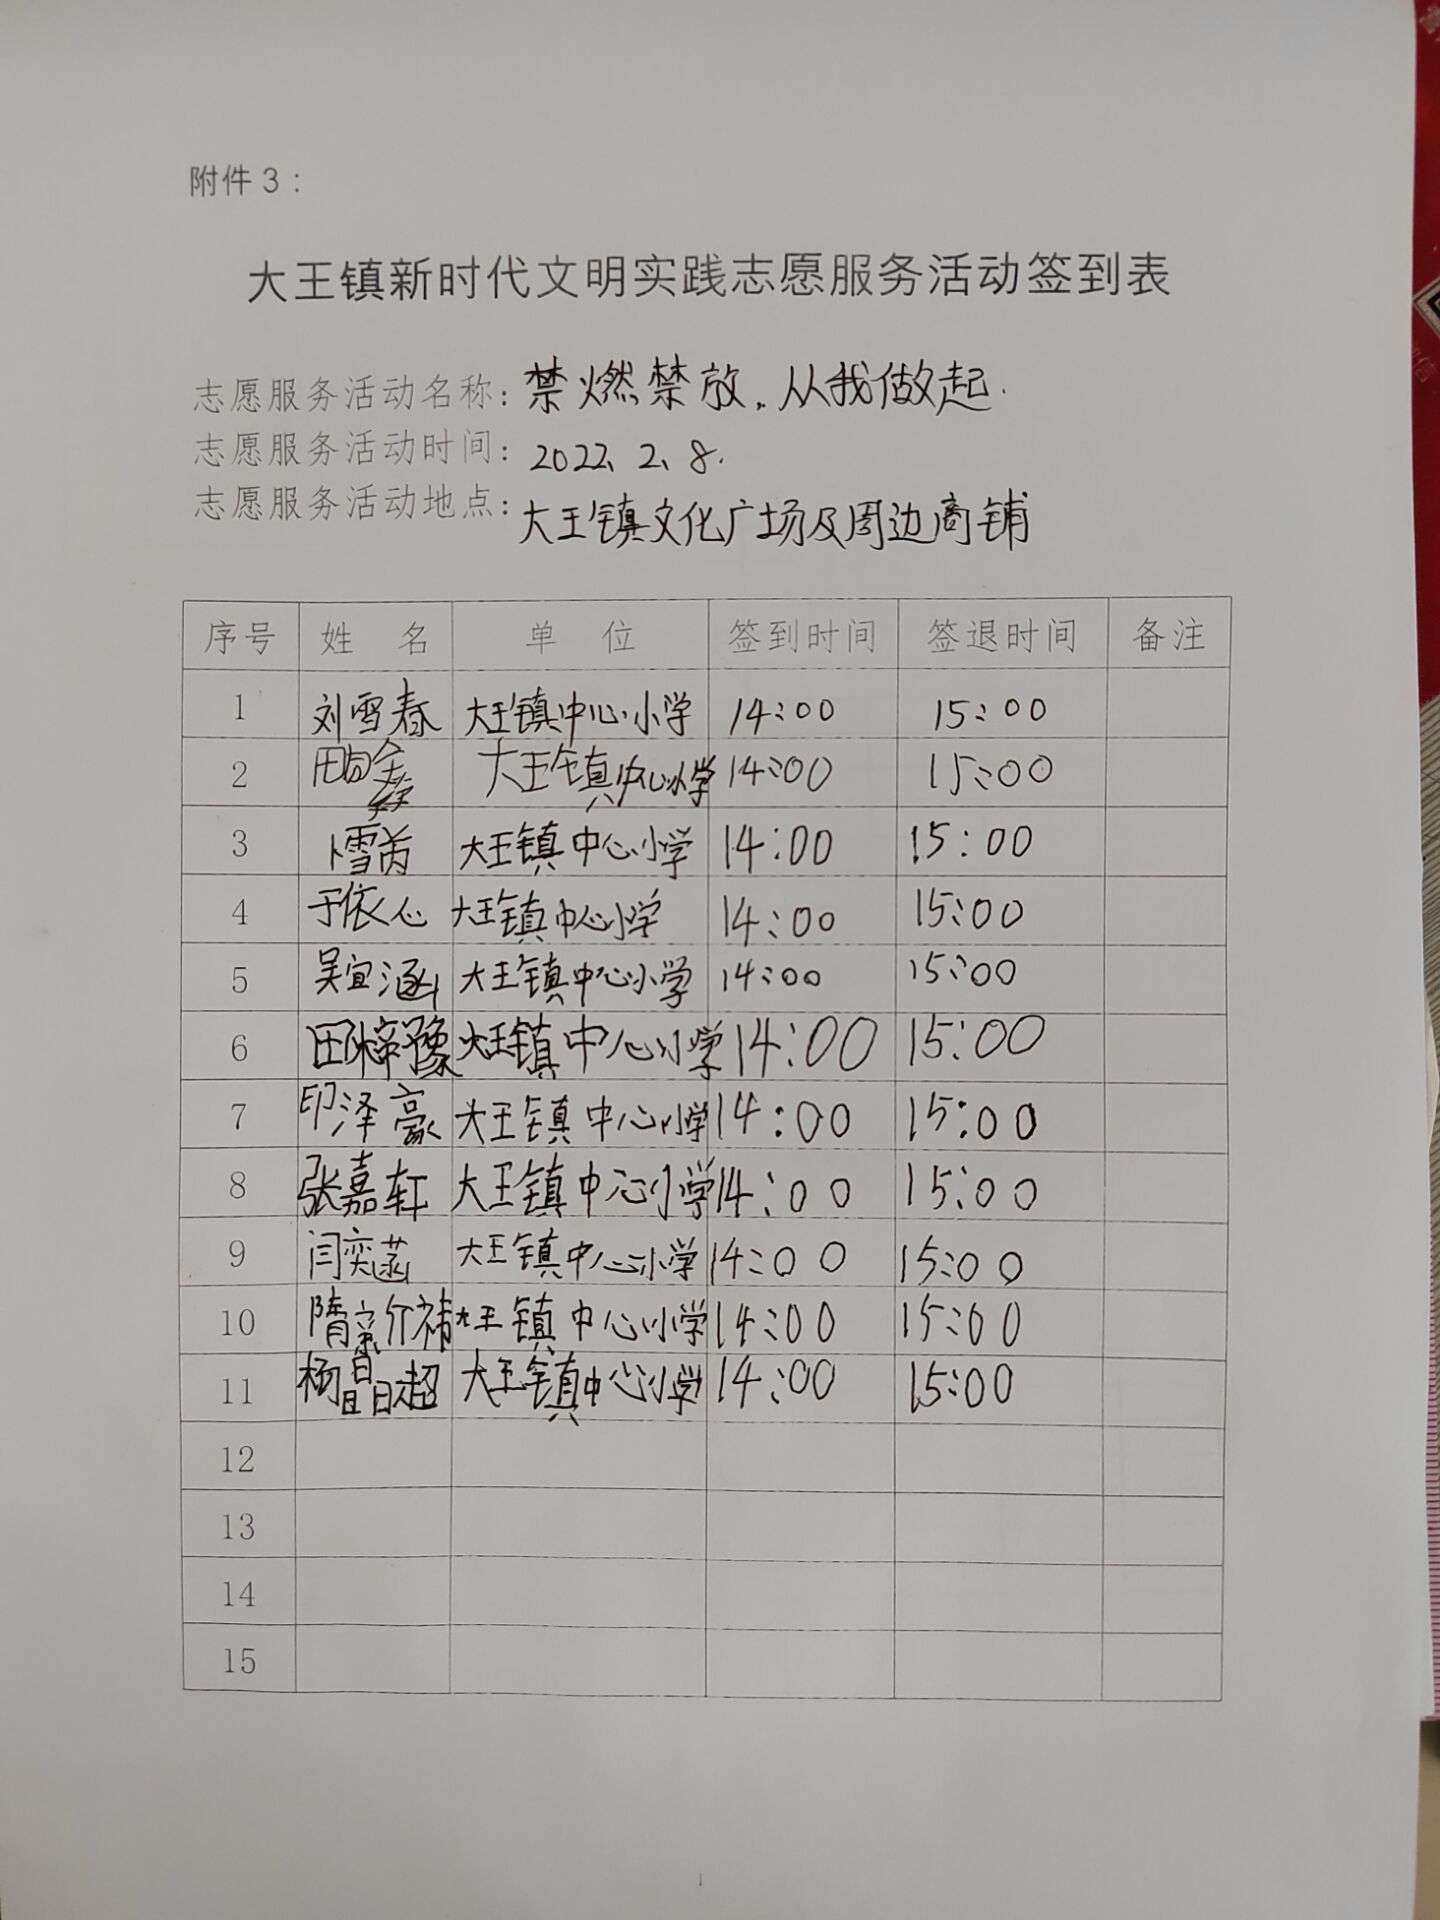 附件3：
大王镇新时代文明实践志愿服务活动签到表
志愿服务活动名称：禁燃禁放，从我做起.
志愿服务活动时间：2022、2、8.
志愿服务活动地点：大王镇文化广场及周边商铺
序号 姓 名 单 位 签到时间 签退时间 备注
1 刘雪春 大王镇中心小学 14：00 15：00
2 大王镇中心小学 14：00 15：00
3 卜雪芮 大王镇中心小学 14：00 15：00
4 于依心 大王镇中心小学 14：00 15：00
5 吴宜涵 大王镇中心小学 14：00 15：00
6 田梓豫 大王镇中心小学 14：00 15：00
7 印泽豪 大王镇中心小学 14：00 15：00
8 张嘉轩 大王镇中心小学 14：00 15：00
9 闫奕菡 大王镇中心小学 14：00 15：00
10 大王镇中心小学 14：00 15：00
11 杨晶超 大王镇中心小学 14：00 15：00
12
13
14
15
1